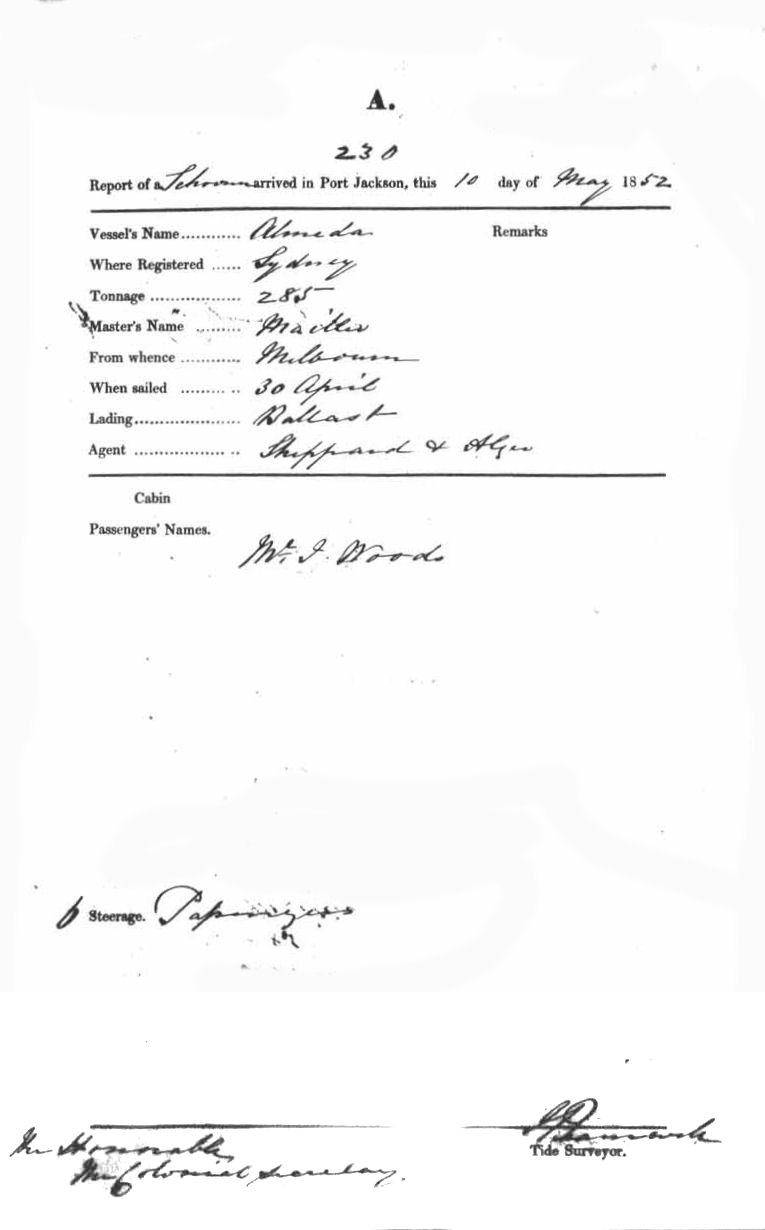 A.
230
Report of a Schooner arrived in Port Jackson, this 10 day of May 1852
Vessel's Name............ Almeda Remarks
Where Registered ...... Sydney
Tonnage .................. 285
Master's Name ......... 
From whence ............ Melbourn
When sailed ......... .. 30 April
Lading..................... Ballast
Agent .................. .. Sheppard & Alger
Cabin
Passengers' Names.
Mr. J. Woods
6 Steerage. Passengers
The Honorable
The Colonial Secretary.
Tide Surveyor.